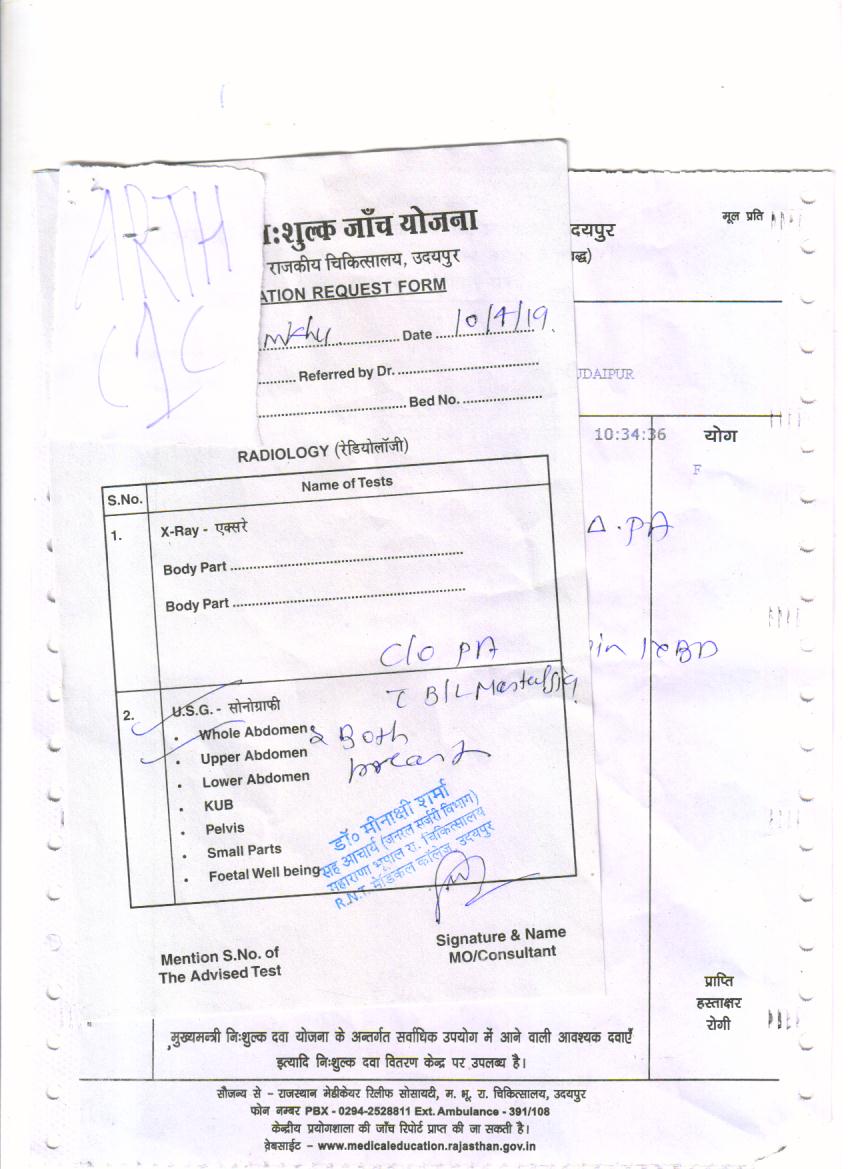 ARTH
C1C
नि:शुल्क जाँच योजना
राजकीय चिकित्सालय, उदयपुर
ATION REQUEST FORM
Date 10/4/19
Referred by Dr.
Bed No.
RADIOLOGY (रेडियोलॉजी)
S.No. Name of Tests
1. X-Ray - एक्सरे
Body Part
Body Part
C/o PA
c B/L
2. U.S.G. - सोनोग्राफी
• Whole Abdomen & Both
• Upper Abdomen breast
• Lower Abdomen
• KUB
• Pelvis
• Small Parts
• Foetal Well being
डॉ० मीनाक्षी शर्मा
सह आचार्य (जनरल सर्जरी विभाग)
महाराणा भूपाल रा. चिकित्सालय
R.N.T. मेडिकल कॉलेज, उदयपुर
Mention S.No. of
The Advised Test
Signature & Name
MO/Consultant
मूल प्रति
दयपुर
द्ध)
UDAIPUR
10:34:36 योग
F
Δ. PA
प्राप्ति
हस्ताक्षर
रोगी
मुख्यमन्त्री निःशुल्क दवा योजना के अन्तर्गत सर्वाधिक उपयोग में आने वाली आवश्यक दवाएँ
इत्यादि निःशुल्क दवा वितरण केन्द्र पर उपलब्ध है।
सौजन्य से – राजस्थान मेडीकेयर रिलीफ सोसायटी, म. भू. रा. चिकित्सालय, उदयपुर
फोन नम्बर PBX - 0294-2528811 Ext. Ambulance - 391/108
केन्द्रीय प्रयोगशाला की जाँच रिपोर्ट प्राप्त की जा सकती है।
वेबसाईट – www.medicaleducation.rajasthan.gov.in